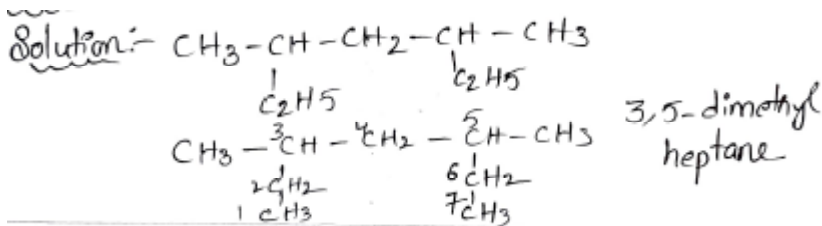 Solution:- CH3-CH-CH2-CH-CH3
C2H5 C2H5
CH3-3CH-4CH2-5CH-CH3 3,5-dimethyl
2CH2 6CH2 heptane
1CH3 7CH3